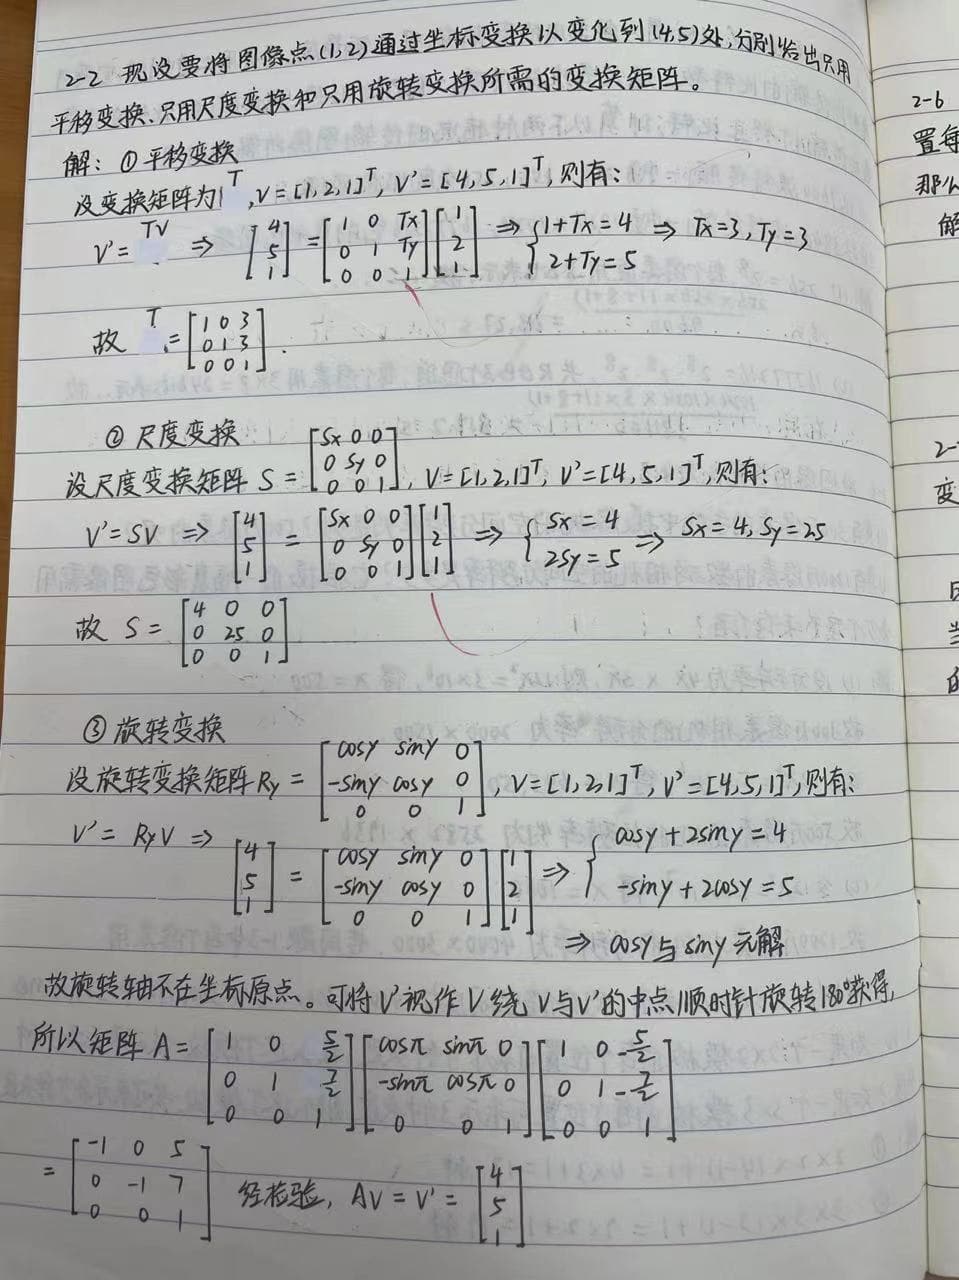 2-2 现设要将图像点(1,2)通过坐标变换以变化到(4,5)处,分别给出只用
平移变换、只用尺度变换和只用旋转变换所需的变换矩阵。
解: ①平移变换
设变换矩阵为T,V=[1,2,1]^T, V'=[4,5,1]^T,则有:
V'=TV ⇒ [4 5 1] = [1 0 Tx; 0 1 Ty; 0 0 1] [1 2 1] ⇒ { 1+Tx=4 2+Ty=5 ⇒ Tx=3, Ty=3
故 T = [1 0 3; 0 1 3; 0 0 1].
② 尺度变换
设尺度变换矩阵 S = [Sx 0 0; 0 Sy 0; 0 0 1], V=[1,2,1]^T, V'=[4,5,1]^T,则有:
V'=SV ⇒ [4 5 1] = [Sx 0 0; 0 Sy 0; 0 0 1] [1 2 1] ⇒ { Sx=4 2Sy=5 ⇒ Sx=4, Sy=25
故 S = [4 0 0; 0 25 0; 0 0 1]
③ 旋转变换
设旋转变换矩阵Rγ = [cosγ sinγ 0; -sinγ cosγ 0; 0 0 1], V=[1,2,1]^T, V'=[4,5,1]^T,则有:
V' = RγV ⇒ [4 5 1] = [cosγ sinγ 0; -sinγ cosγ 0; 0 0 1] [1 2 1] ⇒ { cosγ+2sinγ=4 -sinγ+2cosγ=5
⇒ cosγ与sinγ无解
故旋转轴不在坐标原点。可将V'视作V绕V与V'的中点顺时针旋转180°获得,
所以矩阵 A = [1 0 5/2; 0 1 7/2; 0 0 1] [cosπ sinπ 0; -sinπ cosπ 0; 0 0 1] [1 0 -5/2; 0 1 -7/2; 0 0 1]
= [-1 0 5; 0 -1 7; 0 0 1] 经检验, AV=V'= [4 5 1]
2-6
置每
那么
解
2-
变